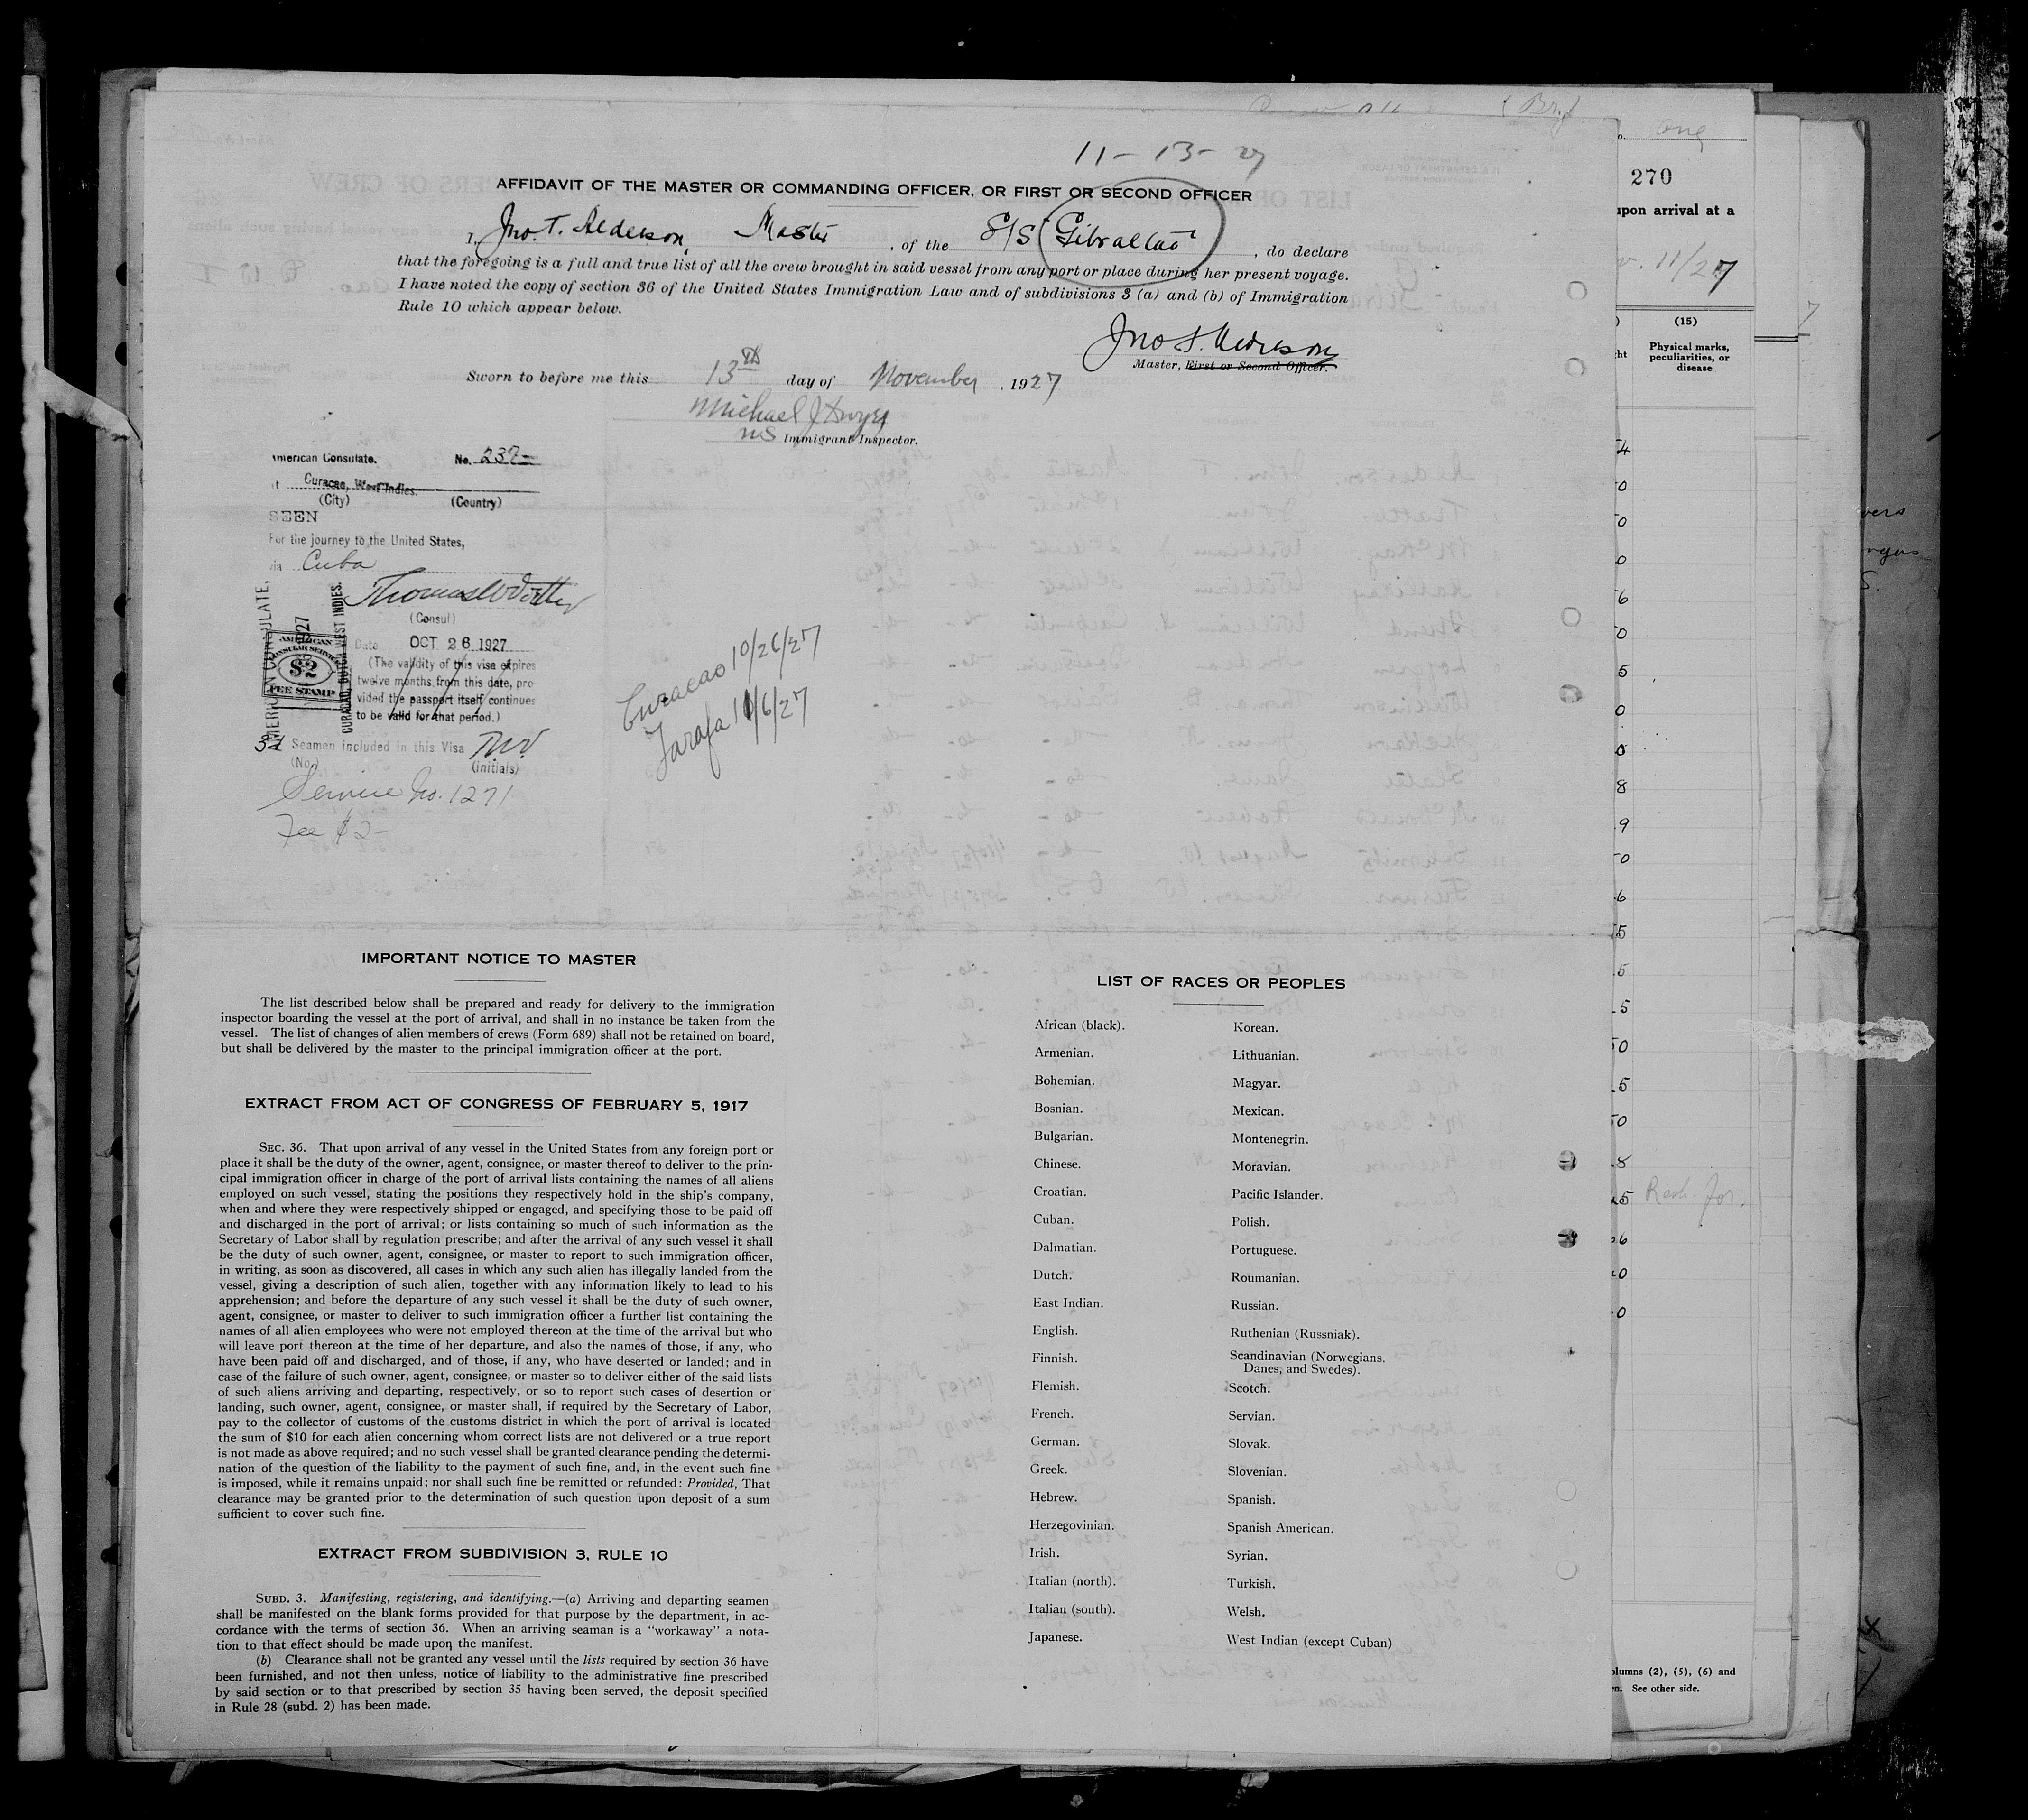 11-13-27
AFFIDAVIT OF THE MASTER OR COMMANDING OFFICER, OR FIRST OR SECOND OFFICER
I, Jno. T. Alderson, Master, of the S/S Gibraltar, do declare
that the foregoing is a full and true list of all the crew brought in said vessel from any port or place during her present voyage.
I have noted the copy of section 36 of the United States Immigration Law and of subdivisions 3 (a) and (b) of Immigration
Rule 10 which appear below.
Jno T. Alderson
Master, First or Second Officer.
Sworn to before me this 13th day of November, 1927
Michael J Dwyer
Immigrant Inspector.
American Consulate. No. 237
at Curacao, West Indies.
(City) (Country)
SEEN
For the journey to the United States,
via Cuba
(Consul)
Date OCT 26 1927
(The validity of this visa expires
twelve months from this date, pro-
vided the passport itself continues
to be valid for that period.)
AMERICAN CONSULATE,
CURACAO, DUTCH WEST INDIES.
AMERICAN
CONSULAR SERVICE
$2
FEE STAMP
Seamen included in this Visa
(No.) (initials)
Service No. 1271
Fee $2-
Curacao 10/26/27
Tarafa 11/6/27
IMPORTANT NOTICE TO MASTER
The list described below shall be prepared and ready for delivery to the immigration
inspector boarding the vessel at the port of arrival, and shall in no instance be taken from the
vessel. The list of changes of alien members of crews (Form 689) shall not be retained on board,
but shall be delivered by the master to the principal immigration officer at the port.
EXTRACT FROM ACT OF CONGRESS OF FEBRUARY 5, 1917
SEC. 36. That upon arrival of any vessel in the United States from any foreign port or
place it shall be the duty of the owner, agent, consignee, or master thereof to deliver to the prin-
cipal immigration officer in charge of the port of arrival lists containing the names of all aliens
employed on such vessel, stating the positions they respectively hold in the ship's company,
when and where they were respectively shipped or engaged, and specifying those to be paid off
and discharged in the port of arrival; or lists containing so much of such information as the
Secretary of Labor shall by regulation prescribe; and after the arrival of any such vessel it shall
be the duty of such owner, agent, consignee, or master to report to such immigration officer,
in writing, as soon as discovered, all cases in which any such alien has illegally landed from the
vessel, giving a description of such alien, together with any information likely to lead to his
apprehension; and before the departure of any such vessel it shall be the duty of such owner,
agent, consignee, or master to deliver to such immigration officer a further list containing the
names of all alien employees who were not employed thereon at the time of the arrival but who
will leave port thereon at the time of her departure, and also the names of those, if any, who
have been paid off and discharged, and of those, if any, who have deserted or landed; and in
case of the failure of such owner, agent, consignee, or master so to deliver either of the said lists
of such aliens arriving and departing, respectively, or so to report such cases of desertion or
landing, such owner, agent, consignee, or master shall, if required by the Secretary of Labor,
pay to the collector of customs of the customs district in which the port of arrival is located
the sum of $10 for each alien concerning whom correct lists are not delivered or a true report
is not made as above required; and no such vessel shall be granted clearance pending the determi-
nation of the question of the liability to the payment of such fine, and, in the event such fine
is imposed, while it remains unpaid; nor shall such fine be remitted or refunded: Provided, That
clearance may be granted prior to the determination of such question upon deposit of a sum
sufficient to cover such fine.
EXTRACT FROM SUBDIVISION 3, RULE 10
SUBD. 3. Manifesting, registering, and identifying.—(a) Arriving and departing seamen
shall be manifested on the blank forms provided for that purpose by the department, in ac-
cordance with the terms of section 36. When an arriving seaman is a "workaway" a nota-
tion to that effect should be made upon the manifest.
(b) Clearance shall not be granted any vessel until the lists required by section 36 have
been furnished, and not then unless, notice of liability to the administrative fine prescribed
by said section or to that prescribed by section 35 having been served, the deposit specified
in Rule 28 (subd. 2) has been made.
LIST OF RACES OR PEOPLES
African (black).
Armenian.
Bohemian.
Bosnian.
Bulgarian.
Chinese.
Croatian.
Cuban.
Dalmatian.
Dutch.
East Indian.
English.
Finnish.
Flemish.
French.
German.
Greek.
Hebrew.
Herzegovinian.
Irish.
Italian (north).
Italian (south).
Japanese.
Korean.
Lithuanian.
Magyar.
Mexican.
Montenegrin.
Moravian.
Pacific Islander.
Polish.
Portuguese.
Roumanian.
Russian.
Ruthenian (Russniak).
Scandinavian (Norwegians,
Danes, and Swedes).
Scotch.
Servian.
Slovak.
Slovenian.
Spanish.
Spanish American.
Syrian.
Turkish.
Welsh.
West Indian (except Cuban)
270
upon arrival at a
11/27
(15)
Physical marks,
peculiarities, or
disease
columns (2), (5), (6) and
See other side.